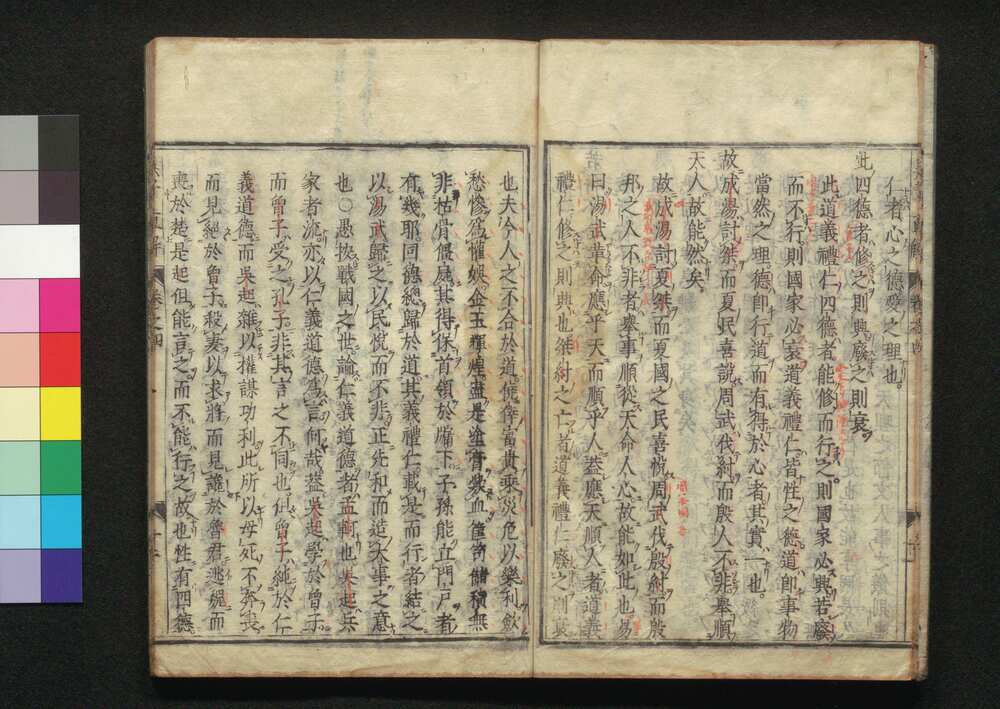 仁者心之德愛之理也
此四德者修之則興廢之則衰
此道義禮仁四德者能修而行之則國家必興若廢
而不行則國家必衰道義禮仁皆性之德道即事物
當然之理德即行道而有得於心者其實一也
故成湯討桀而夏民喜說周武伐紂而殷人不非舉順
天人故能然矣
故成湯討夏桀而夏國之民喜悅周武伐殷紂而殷
邦之人不非者舉事順從天命人心故能如此也易
曰湯武革命應乎天而順乎人蓋應天順人者道義
禮仁修之則興也桀紂之亡者道義禮仁廢之則衰
也夫今人之不合於道僥倖富貴乘災危以樂利斂
愁慘為懽娛金玉輝煌盡是塗膏釁血倉箱儲積無
非枯骨僵屍其得保首領於牖下子孫能立門戶者
有幾耶回德總歸於道其義禮仁載是而行者結之
以湯武歸之以民悅而不非正先和而造大事之意
也○愚按戰國之世論仁義道德者孟軻也吳起兵
家者流亦以仁義道德為言何哉蓋吳起學於曾子
而曾子受之孔子非其言之不同也但曾子純於仁
義道德而吳起雜以權謀功利此所以母死不奔喪
而見絕於曾子殺妻以求將而見譏於魯君逃魏而
喪於楚是起但能言之而不能行之故也性有四德